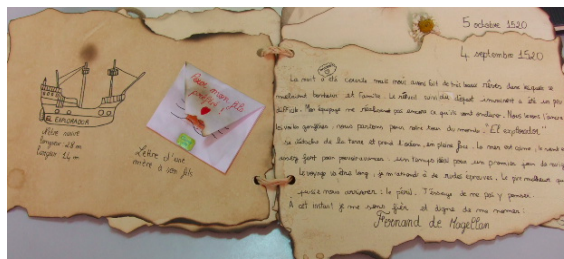 EXPLORADOR
Notre navire
longueur 28 m
largeur 14 m
Pour mon fils
Lettre d'une
mère à son fils
5 octobre 1520
4 septembre 1520
La nuit a été courte mais nous avons fait de très beaux rêves dans lesquels se
mêlaient bonheur et famille. Le réveil un peu
difficile. Mon équipage ne réalisant pas encore ce qu'ils vont endurer. Nous levons l'ancre
les voiles gonflées, nous partons pour notre tour du monde. "El explorador"
se détache de la terre et prend l'océan, en pleine face. La mer est calme, le vent
assez fort pour pouvoir avancer. un temps idéal pour un premier jour de
Le voyage va être long, je m'attends à de rudes épreuves. Le pire
puisse nous arriver : le péril. J'essaye de ne pas y penser.
A cet instant je me sens fier et digne de me nommer:
Fernand de Magellan